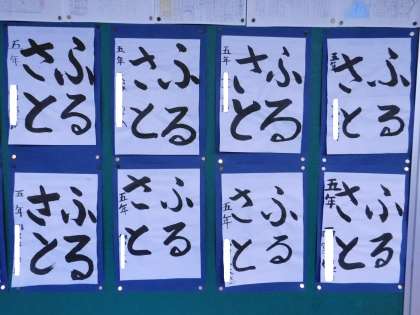 ふる
さと
五年
ふる
さと
五年
ふる
さと
五年
ふる
さと
五年
ふる
さと
五年
ふる
さと
五年
ふる
さと
五年
ふる
さと
五年